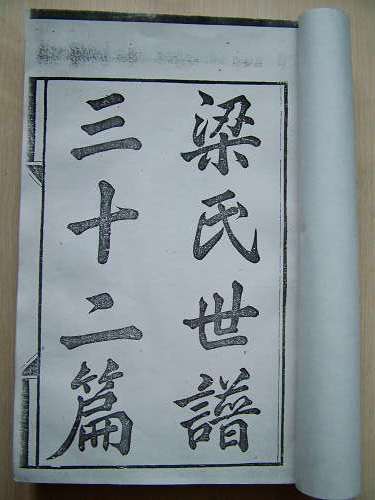 梁氏世譜
三十二篇